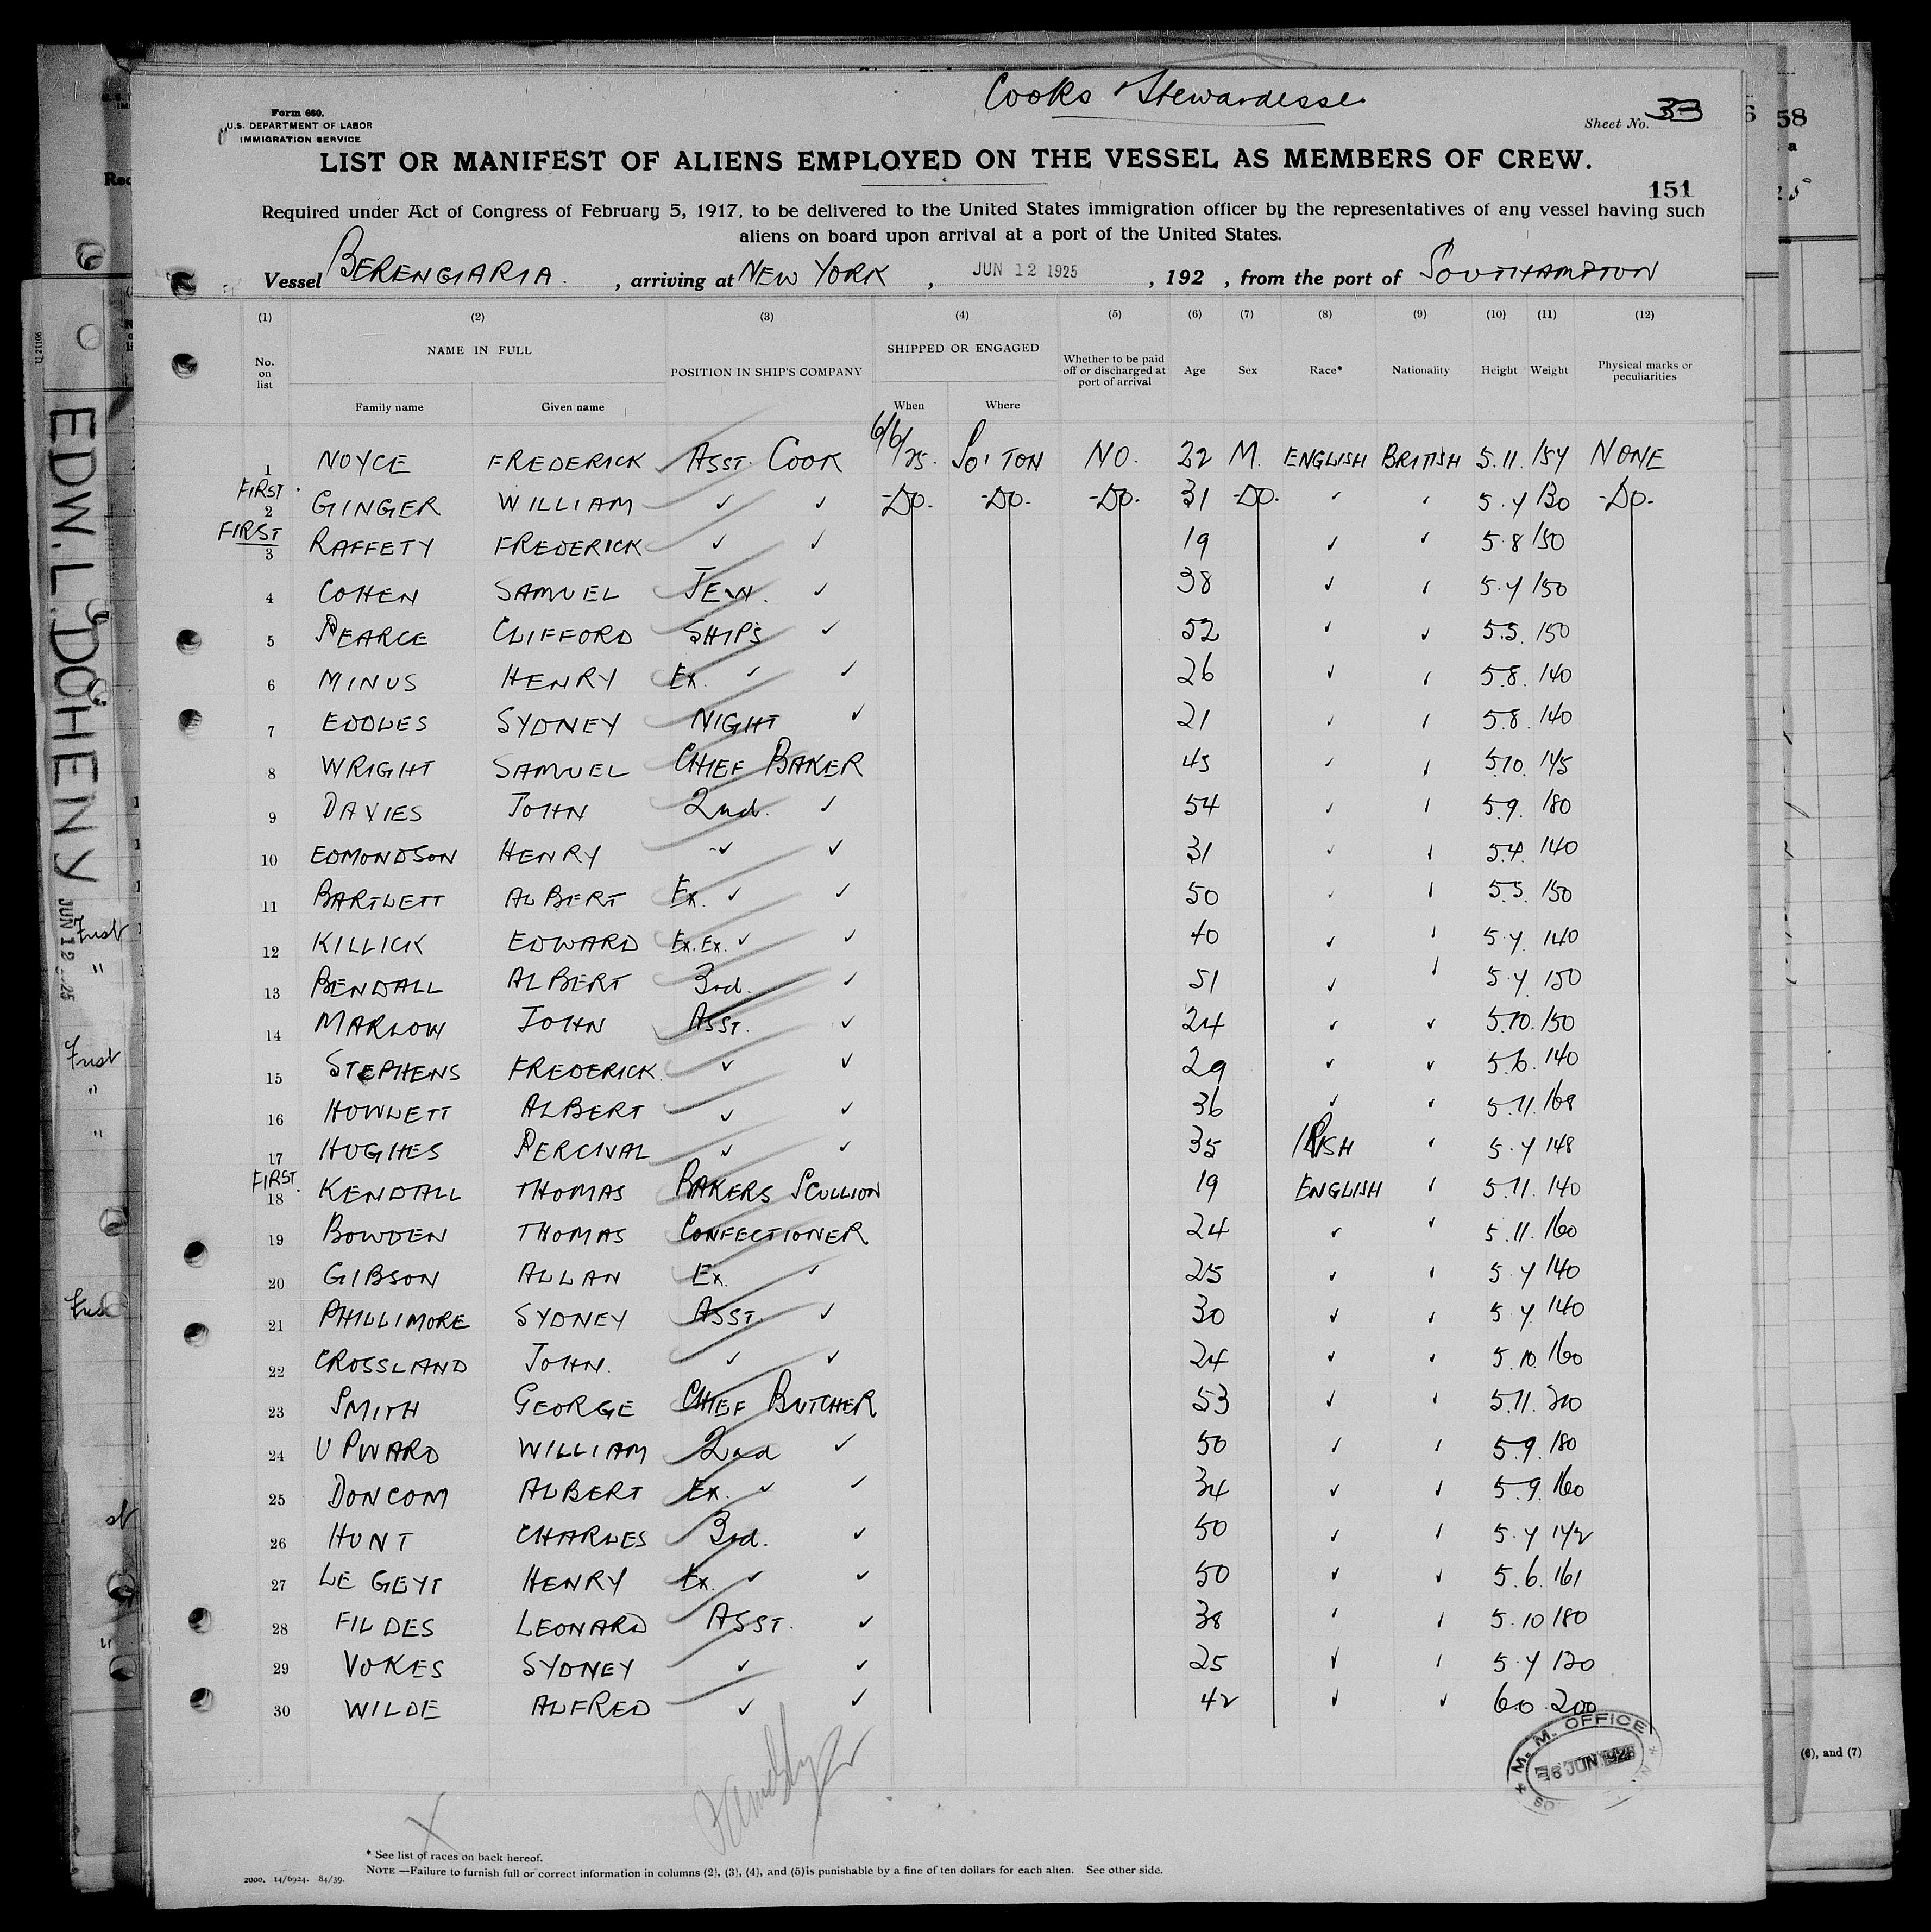 Cooks & Stewardesses
Form 680.
U.S. DEPARTMENT OF LABOR
IMMIGRATION SERVICE
Sheet No. 33
LIST OR MANIFEST OF ALIENS EMPLOYED ON THE VESSEL AS MEMBERS OF CREW.
151
Required under Act of Congress of February 5, 1917, to be delivered to the United States immigration officer by the representatives of any vessel having such
aliens on board upon arrival at a port of the United States.
Vessel BERENGARIA. , arriving at NEW YORK , JUN 12 1925 , 192 , from the port of SOUTHAMPTON
(1) (2) (3) (4) (5) (6) (7) (8) (9) (10) (11) (12)
No. on list NAME IN FULL POSITION IN SHIP'S COMPANY SHIPPED OR ENGAGED Whether to be paid off or discharged at port of arrival Age Sex Race* Nationality Height Weight Physical marks or peculiarities
Family name Given name When Where
1 NOYCE FREDERICK ASST. COOK 6/6/25. SO'TON NO. 22 M. ENGLISH BRITISH 5.11. 154 NONE
FIRST 2 GINGER WILLIAM ✓ ✓ -DO- -DO- -DO- 31 -DO- ✓ ✓ 5.4 130 -DO-
FIRST 3 RAFFETY FREDERICK ✓ ✓ 19 ✓ ✓ 5.8 150
4 COHEN SAMUEL JEW. ✓ 38 ✓ ✓ 5.4 150
5 PEARCE CLIFFORD SHIP'S ✓ 52 ✓ ✓ 5.5. 150
6 MINUS HENRY Ex. ✓ ✓ 26 ✓ ✓ 5.8. 140
7 EDDLES SYDNEY NIGHT ✓ 21 ✓ ✓ 5.8. 140
8 WRIGHT SAMUEL CHIEF BAKER 45 ✓ ✓ 5.10. 145
9 DAVIES JOHN 2nd. ✓ 54 ✓ ✓ 5.9. 180
10 EDMONDSON HENRY ✓ ✓ 31 ✓ ✓ 5.4. 140
11 BARTLETT ALBERT Ex. ✓ ✓ 50 ✓ ✓ 5.5. 150
12 KILLICK EDWARD Ex. Ex. ✓ ✓ 40 ✓ ✓ 5.4. 140
13 BENDALL ALBERT 3rd. ✓ 51 ✓ ✓ 5.4. 150
14 MARLOW JOHN ASST. ✓ 24 ✓ ✓ 5.10. 150
15 STEPHENS FREDERICK. ✓ ✓ 29 ✓ ✓ 5.6. 140
16 HOWLETT ALBERT ✓ ✓ 36 ✓ ✓ 5.11. 168
17 HUGHES PERCIVAL ✓ ✓ 35 IRISH ✓ 5.4 148
FIRST. 18 KENDALL THOMAS BAKERS SCULLION 19 ENGLISH ✓ 5.11. 140
19 BOWDEN THOMAS CONFECTIONER 24 ✓ ✓ 5.11. 160
20 GIBSON ALLAN Ex. ✓ 25 ✓ ✓ 5.4 140
21 PHILLIMORE SYDNEY ASST. ✓ 30 ✓ ✓ 5.4. 140
22 CROSSLAND JOHN. ✓ ✓ 24 ✓ ✓ 5.10. 160
23 SMITH GEORGE CHIEF BUTCHER 53 ✓ ✓ 5.11. 210
24 UPWARD WILLIAM 2nd ✓ 50 ✓ ✓ 5.9. 180
25 DONCOM ALBERT Ex. ✓ ✓ 34 ✓ ✓ 5.9. 160
26 HUNT CHARLES 3rd. ✓ 50 ✓ ✓ 5.4 142
27 LE GEYT HENRY Ex. ✓ ✓ 50 ✓ ✓ 5.6. 161
28 FILDES LEONARD ASST. ✓ 38 ✓ ✓ 5.10 180
29 VOKES SYDNEY ✓ ✓ 25 ✓ ✓ 5.4 120
30 WILDE ALFRED ✓ ✓ 42 ✓ ✓ 6.0. 200
M. M. OFFICE
6 JUN 1925
* See list of races on back hereof.
NOTE —Failure to furnish full or correct information in columns (2), (3), (4), and (5) is punishable by a fine of ten dollars for each alien. See other side.
2000. 14/6924. 84/39.
EDW. L. DOHENY
JUN 12 25
U 21106
First
"
First
"
"
58
(6), and (7)